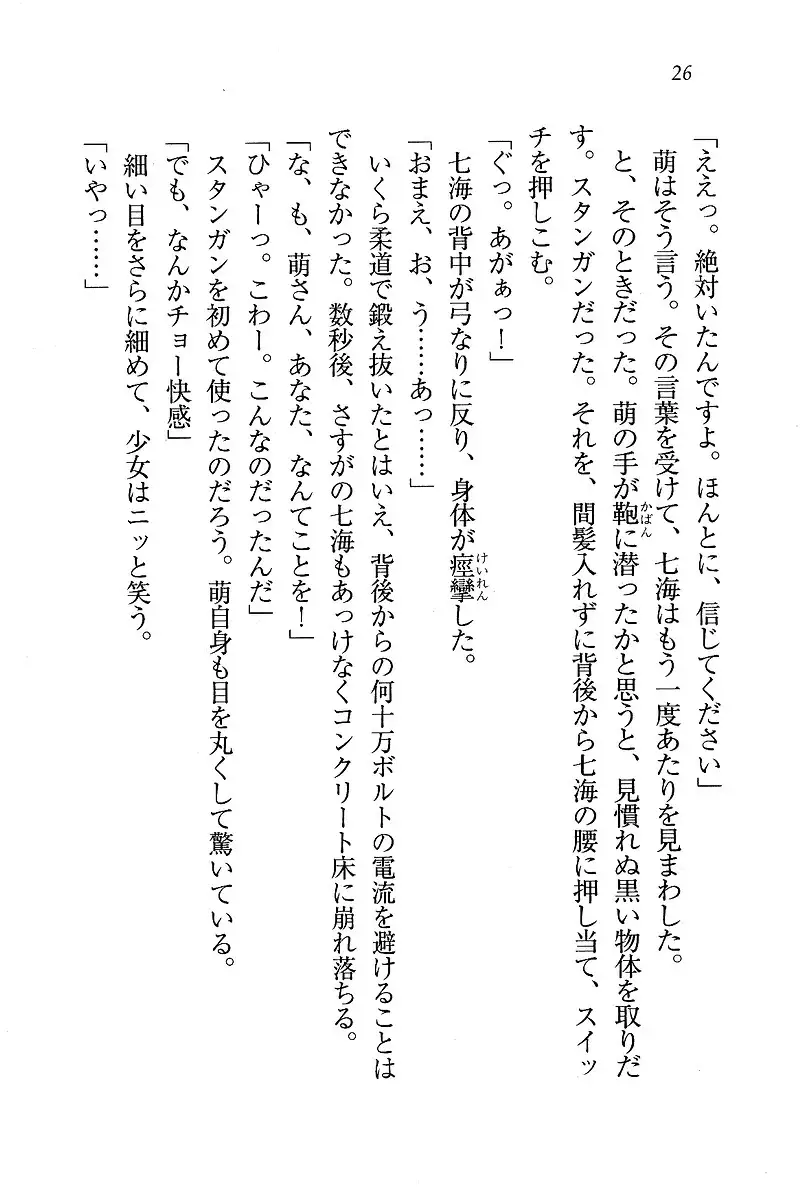 26
「ええっ。絶対いたんですよ。ほんとに、信じてください」
萌はそう言う。その言葉を受けて、七海はもう一度あたりを見まわした。
と、そのときだった。萌の手が鞄に潜ったかと思うと、見慣れぬ黒い物体を取りだ
かばん
す。スタンガンだった。それを、間髪入れずに背後から七海の腰に押し当て、スイッ
チを押しこむ。
「ぐっ。あがぁっ！」
七海の背中が弓なりに反り、身体が痙攣した。
けいれん
「おまえ、お、う……あっ……」
いくら柔道で鍛え抜いたとはいえ、背後からの何十万ボルトの電流を避けることは
できなかった。数秒後、さすがの七海もあっけなくコンクリート床に崩れ落ちる。
「な、も、萌さん、あなた、なんてことを！」
「ひゃーっ。こわー。こんなのだったんだ」
スタンガンを初めて使ったのだろう。萌自身も目を丸くして驚いている。
「でも、なんかチョー快感」
細い目をさらに細めて、少女はニッと笑う。
「いやっ……」